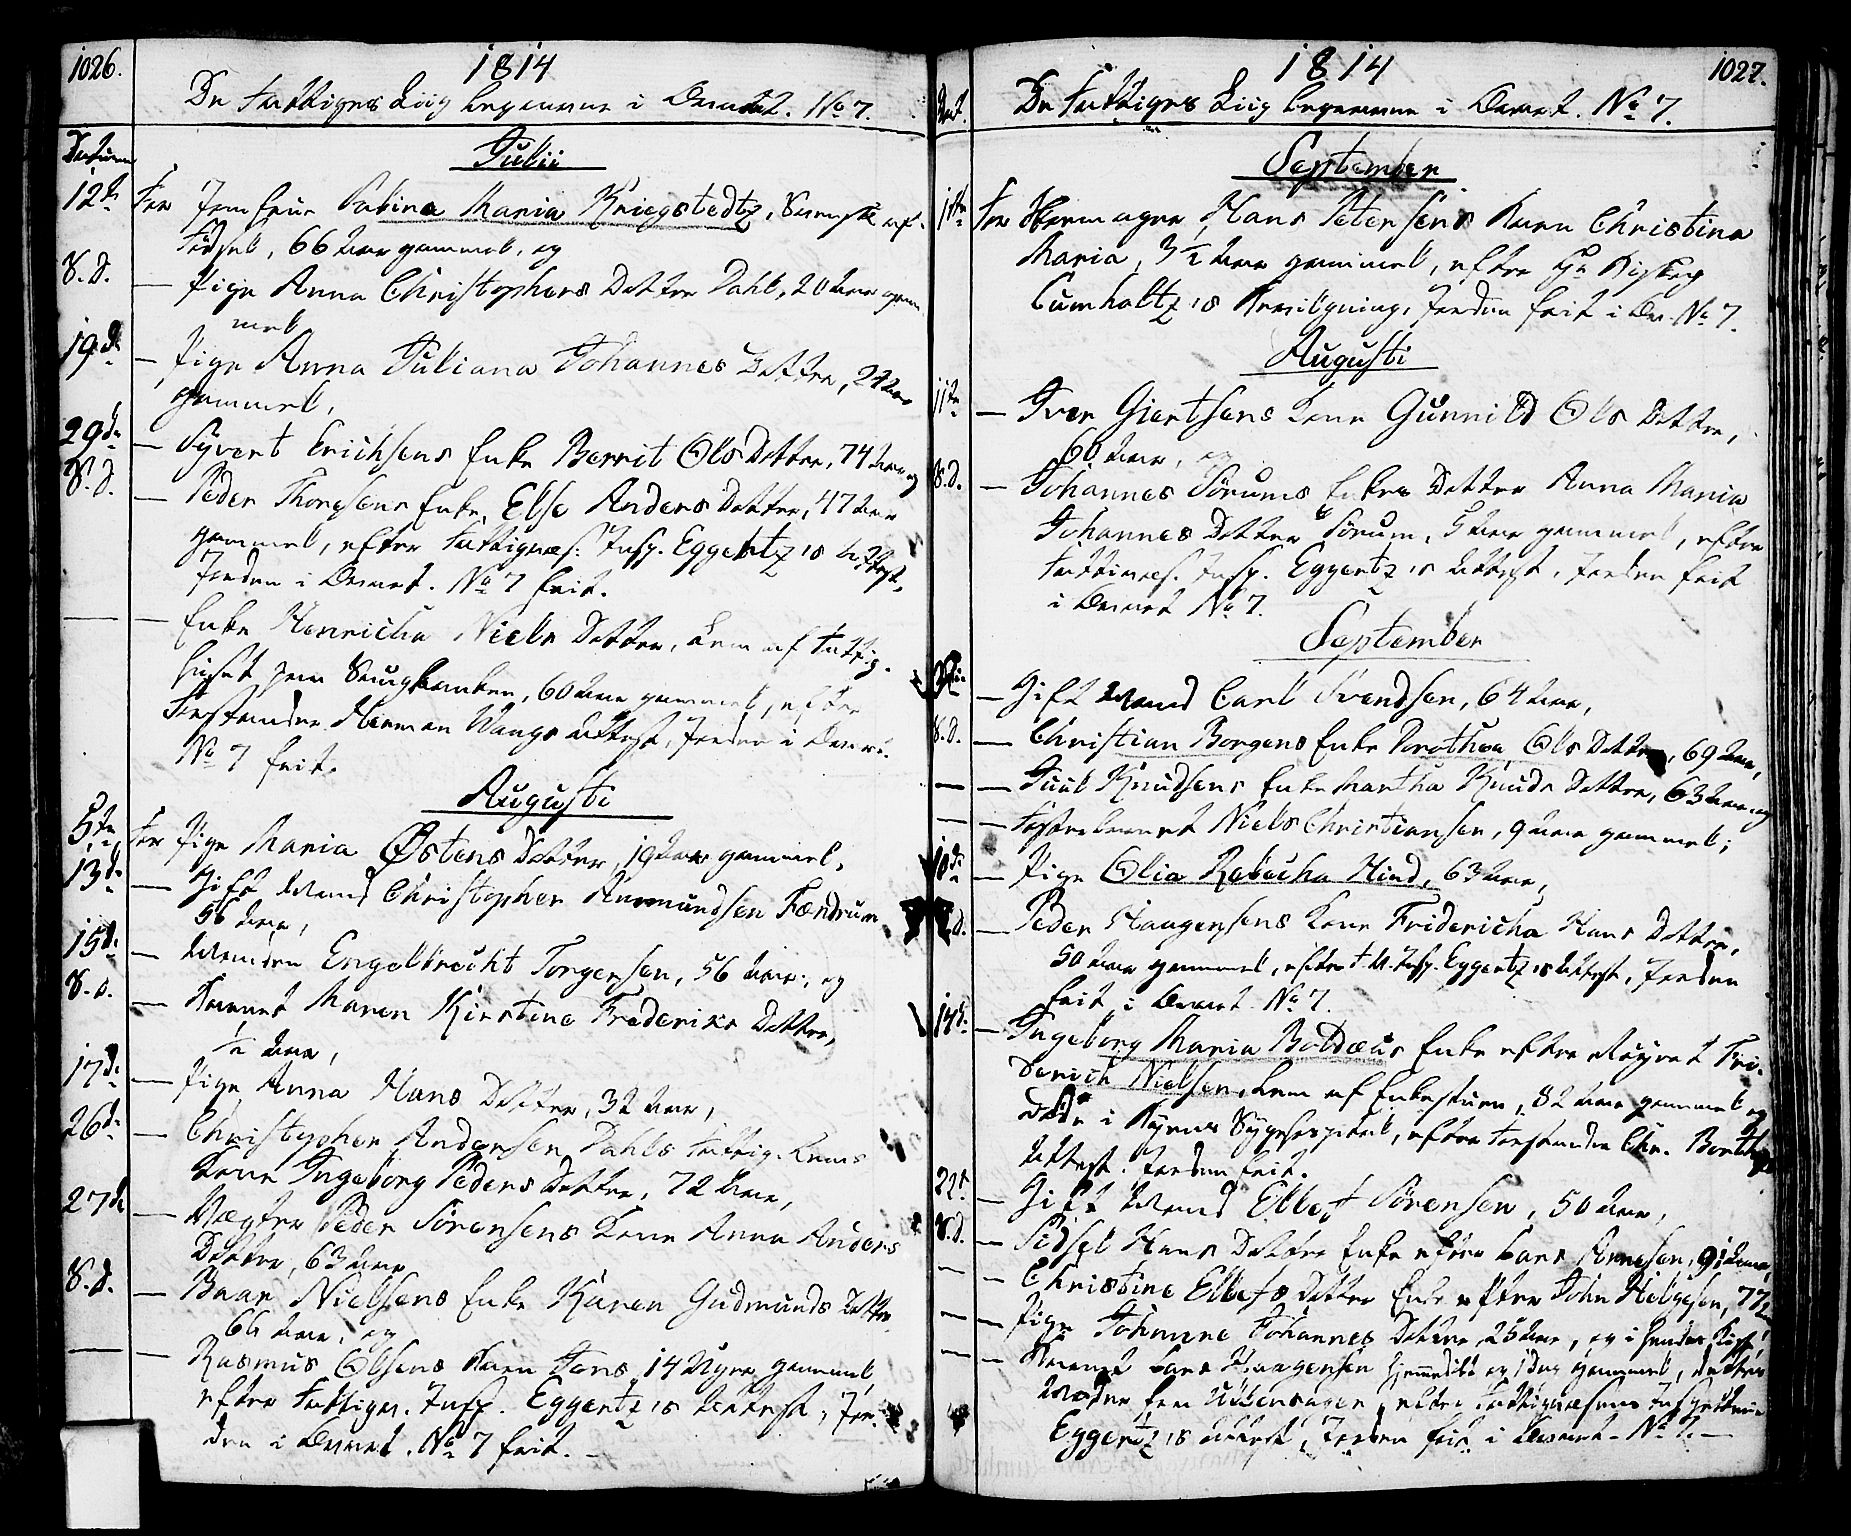 1026.
1814
De Fattiges Liig begravne i Qvartal. No 7.
Datum
Julii
12te For Jomfrue Sabina Maria Kriegstedtz, Svensk af
Födsel, 66 Aar gammel, og
S.D. — Pige Anna Christophers Datter Dahl, 20 Aar gam
mel
19de — Pige Anna Juliana Johannes Datter, 2 Aar
gammel,
29de — Syvert Erichsens Enke Berrit Ols Datter, 74 Aar og
S.D. — Peder Thoresens Enke, Else Anders Datter, 47 Aar
gammel, efter Fattigvæs: Insp. Eggertz's Attest,
Jorden i No 7 frit.
— Enke Henricha Niels Datter, Lem af Fattig-
huset paa 60 Aar gammel, efter
Forstander Herman Wangs Attest, Jorden i
No 7 frit.
Augusti
5te For Pige Maria Østens Datter, 19 Aar gammel,
13de — Gift Mand Christopher Aamundsen Fændrum
56 Aar,
15de — Manden Engelbrecht Torgersen, 56 Aar, og
S.D. — Barnet Maren Kirstine Frederiks Datter,
½ Aar,
17de — Pige Anna Hans Datter, 32 Aar,
26de — Christopher Andersen Dahls Fattig-Lems
Kone Ingeborg Peders Datter, 72 Aar,
27de — Vægter Peder Sörensens Kone Anna Anders
Datter, 63 Aar
S.D. — Baar Nielsens Enke Karen Gudmunds Datter
66 Aar, og
— Rasmus Olsens Barn Jens, 14 Uger gammel,
efter Fattigv. Insp. Eggertz's Attest, Jor-
den i No 7 frit.
1814
1027.
De Fattiges Liig begravne i No 7.
September
1te For Hans Petersens Barn Christina
Maria, 3½ Aar gammel, efter Hr Biskop
Lumholtz's Jorden frit i No 7.
Augusti
11te — Iver Giertsens Kone Gunnild Ols Datter,
60 Aar, og
S.D. — Johannes Sörums Enkes Datter Anna Maria
Johannes Datter Sörum, 5 Aar gammel, efter
Insp. Eggertz's Attest, Jorden frit
i No 7.
September
— Gift Mand Carl Svendsen, 64 Aar,
S.D. — Christian Borgens Enke Dorothea Ols Datter, 69 Aar,
— Juul Knudsens Enke Martha Knuds Datter, 63 Aar og
— Fosterbarnet Niels Christiansen, 9 Aar gammel;
10de — Pige Olia Rebecha Hind, 63 Aar,
S.D. — Peder Haagensens Kone Fridericha Hans Datter,
50 Aar gammel, efter F.V. Insp. Eggertz's Attest, Jorden
frit i No 7.
14de — Ingeborg Maria Boldæus Enke efter Fri-
derich Nielsen, Lem af Enkestuen, 82 Aar gammel og
döde i Byens Sygehospital, efter Forstander Chr.
Attest. Jorden frit.
22d — Gift Mand Ellef Sörensen, 50 Aar,
S.D. — Sidsel Hans Datter Enke efter Lars Arnesen, 91 Aar,
— Christine Ellefs Datter Enke efter John Helgesen, 77
— Pige Johanne Johannes Datter 25 Aar, og i hendes Kiste
— Barnet Lars Haagensen hjemmedöbt og 1 Dag gammel,
Moder fra efter Fattigvæsens Inspecteur
Eggertz's Attest, Jorden frit i No 7.